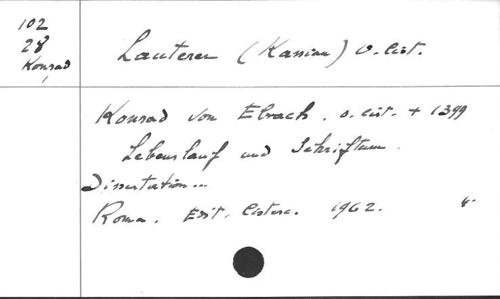 102
28
Konrad
Lauterer (Kassian) O. cist.
Konrad von Ebrach. o. cist. + 1399
Lebenslauf und Schrifttum.
Dissertation...
Roma. Edit. Cisterc. 1962.